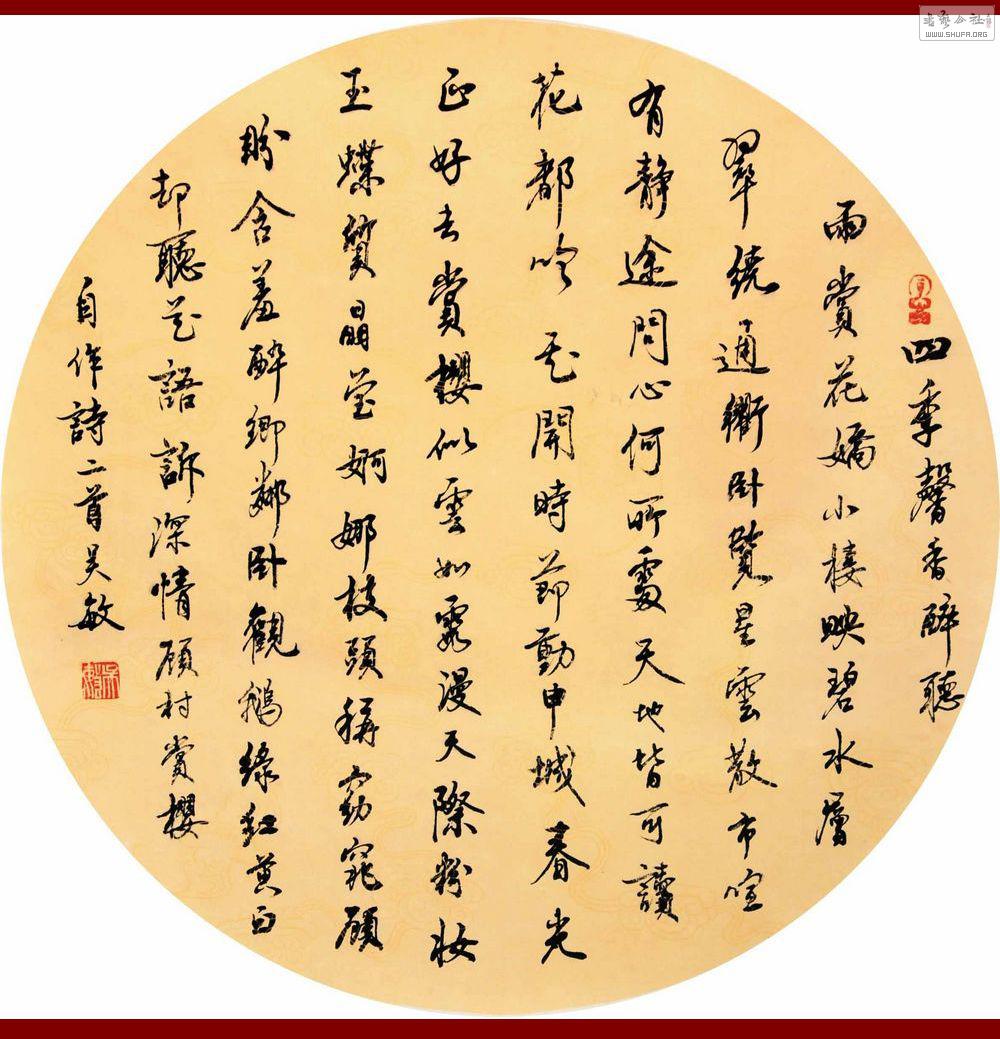 四季馨香醉聽
雨賞花嬌小樓映碧水層
翠繞通衢卧覽星雲散市喧
有靜途問心何所處天地皆可讀
花都吟 花開時節動申城春光
正好去賞櫻似雲如霞漫天際粉妝
玉蝶質晶瑩婀娜枝頭稱窈窕顧
盼含羞醉鄉鄰卧觀鵝綠紅黄白
却聽花語訴深情顧村賞櫻
自作詩二首吴敏
WWW.SHUFA.ORG